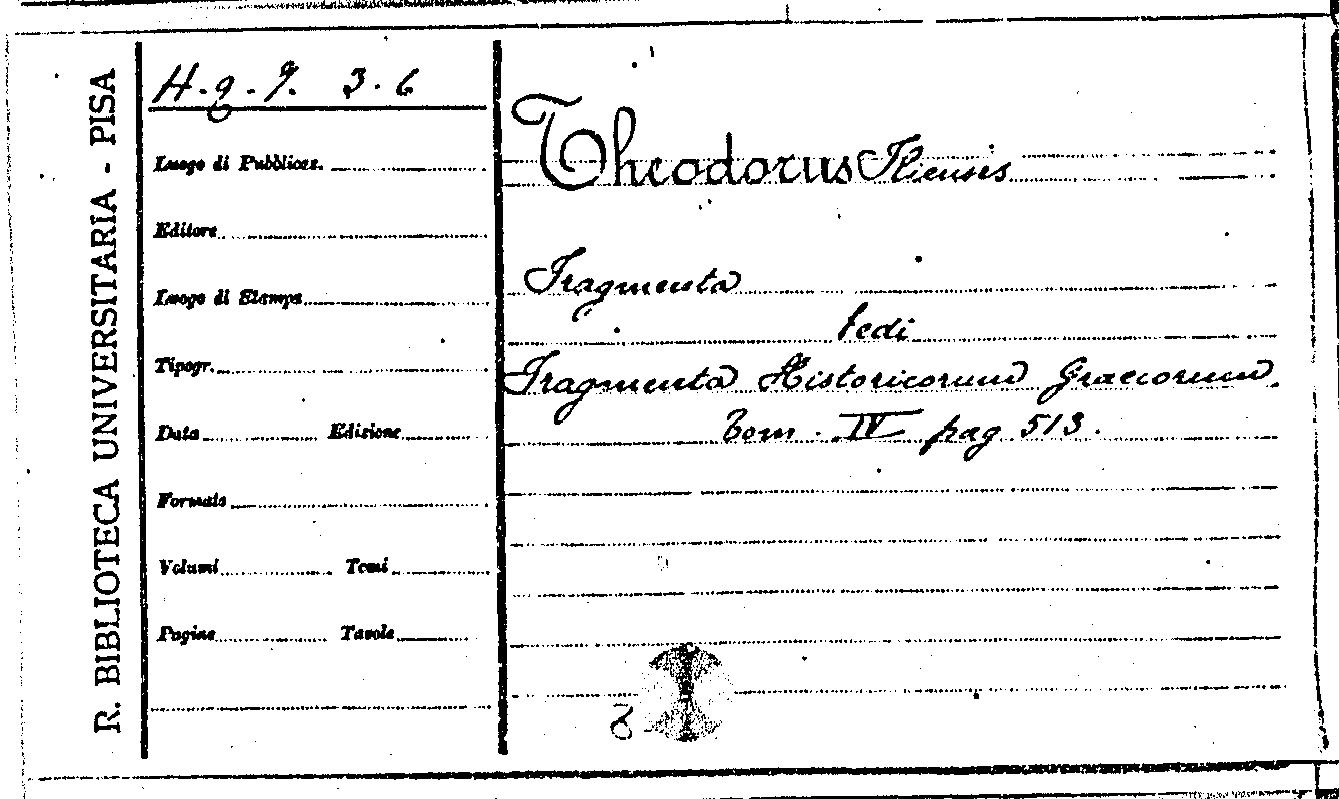 R. BIBLIOTECA UNIVERSITARIA - PISA
H. g. 9. 3. 6
Luogo di Pubblicaz.
Editore
Luogo di Stampa
Tipogr.
Data Edizione
Formato
Volumi Tomi
Pagine Tavole
Theodorus Iliensis
Fragmenta
Vedi
Fragmenta Historicorum Graecorum
Tom. IV pag 513.